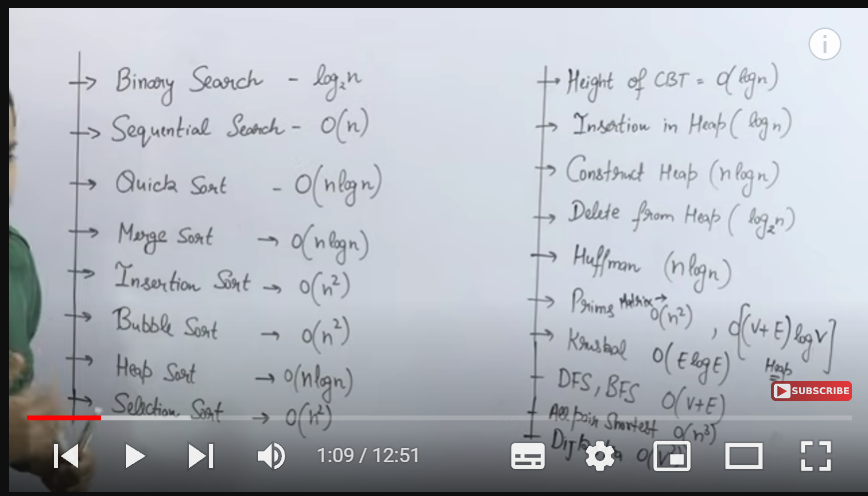 Binary Search - log₂n
Sequential Search - O(n)
Quick Sort - O(nlogn)
Merge Sort → O(nlogn)
Insertion Sort → O(n²)
Bubble Sort → O(n²)
Heap Sort → O(nlogn)
Selection Sort → O(n²)
Height of CBT = O(logn)
Insertion in Heap (logn)
Construct Heap (nlogn)
Delete from Heap (log₂n)
Huffman (nlogn)
Prims Matrix → O(n²), O[(V+E)logV]
Heap
Kruskal O(ElogE)
DFS, BFS O(V+E)
All pair Shortest O(n³)
SUBSCRIBE
1:09 / 12:51